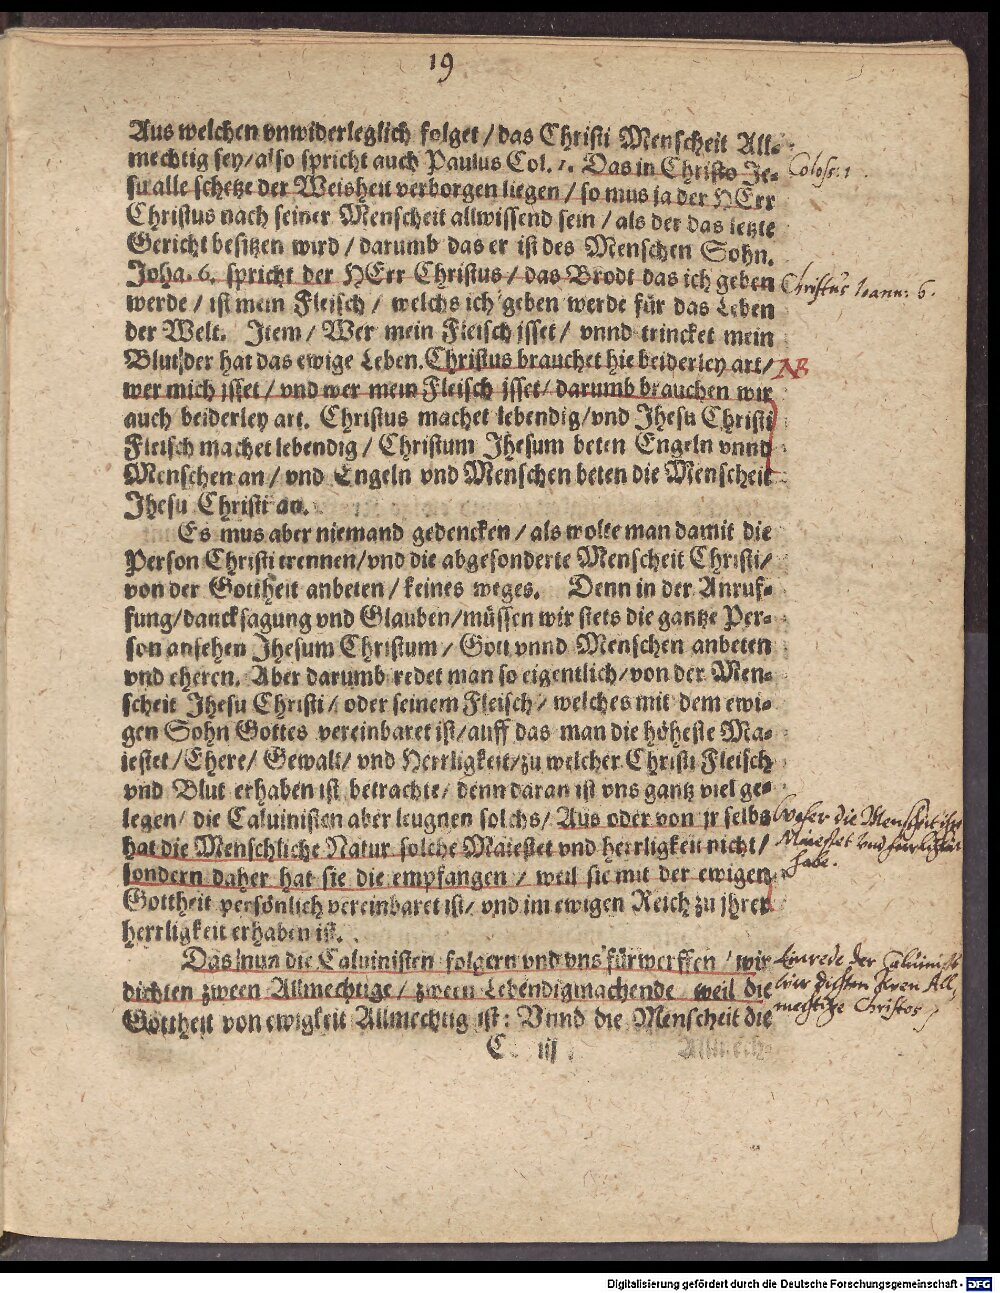 19
Aus welchen vnwiderleglich folget / das Christi Menscheit All-
mechtig sey / also spricht auch Paulus Col. 1. Das in Christo Je-
su alle schetze der Weisheit verborgen liegen / so mus ja der HErr
Christus nach seiner Menscheit allwissend sein / als der das letzte
Gericht besitzen wird / darumb das er ist des Menschen Sohn.
Joha. 6. spricht der HErr Christus / das Brodt das ich geben
werde / ist mein Fleisch / welchs ich geben werde für das Leben
der Welt. Item / Wer mein Fleisch isset / vnnd trincket mein
Blut / der hat das ewige Leben. Christus brauchet hie beiderley art /
wer mich isset / vnd wer mein Fleisch isset / darumb brauchen wir
auch beiderley art. Christus machet lebendig / vnd Jhesu Christi
Fleisch machet lebendig / Christum Jhesum beten Engeln vnnd
Menschen an / vnd Engeln vnd Menschen beten die Menscheit
Jhesu Christi an.
Es mus aber niemand gedencken / als wolte man damit die
Person Christi trennen / vnd die abgesonderte Menscheit Christi /
von der Gottheit anbeten / keines weges. Denn in der Anruf-
fung / dancksagung vnd Glauben / müssen wir stets die gantze Per-
son ansehen Jhesum Christum / Gott vnnd Menschen anbeten
vnd eheren. Aber darumb redet man so eigentlich / von der Men-
scheit Jhesu Christi / oder seinem Fleisch / welches mit dem ewi-
gen Sohn Gottes vereinbaret ist / auff das man die höheste Ma-
iestet / Ehere / Gewalt / vnd Herrligkeit / zu welcher Christi Fleisch
vnd Blut erhaben ist betrachte / denn daran ist vns gantz viel ge-
legen / die Caluinisten aber leugnen solchs / Aus oder von jr selbs
hat die Menschliche Natur solche Maiestet vnd herrligkeit nicht /
sondern daher hat sie die empfangen / weil sie mit der ewigen
Gottheit persönlich vereinbaret ist / vnd im ewigen Reich zu jhrer
herrligkeit erhaben ist.
Das nun die Caluinisten folgern vnd vns fürwerffen / wir
dichten zween Allmechtige / zween Lebendigmachende weil die
Gottheit von ewigkeit Allmechtig ist: Vnnd die Menscheit die
C iij
Allmech-
Coloss: 1.
Christus Ioann: 6.
NB
Woher die Menscheit ihre
Maiestet vnd herrligkeit
habe.
Einrede der Caluinisten
wir dichten zween All-
mechtige Christos
Digitalisierung gefördert durch die Deutsche Forschungsgemeinschaft - DFG